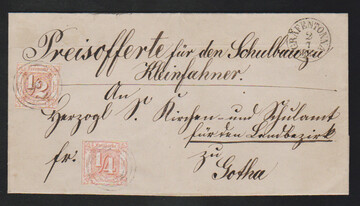 Preisofferte für den Schulbau zu
Kleinfahner.
An
Herzogl S. Kirchen- und Schulamt
für den Landbezirk
fr.
zu
Gotha
GRÄFENTONNA
1/2
1/4